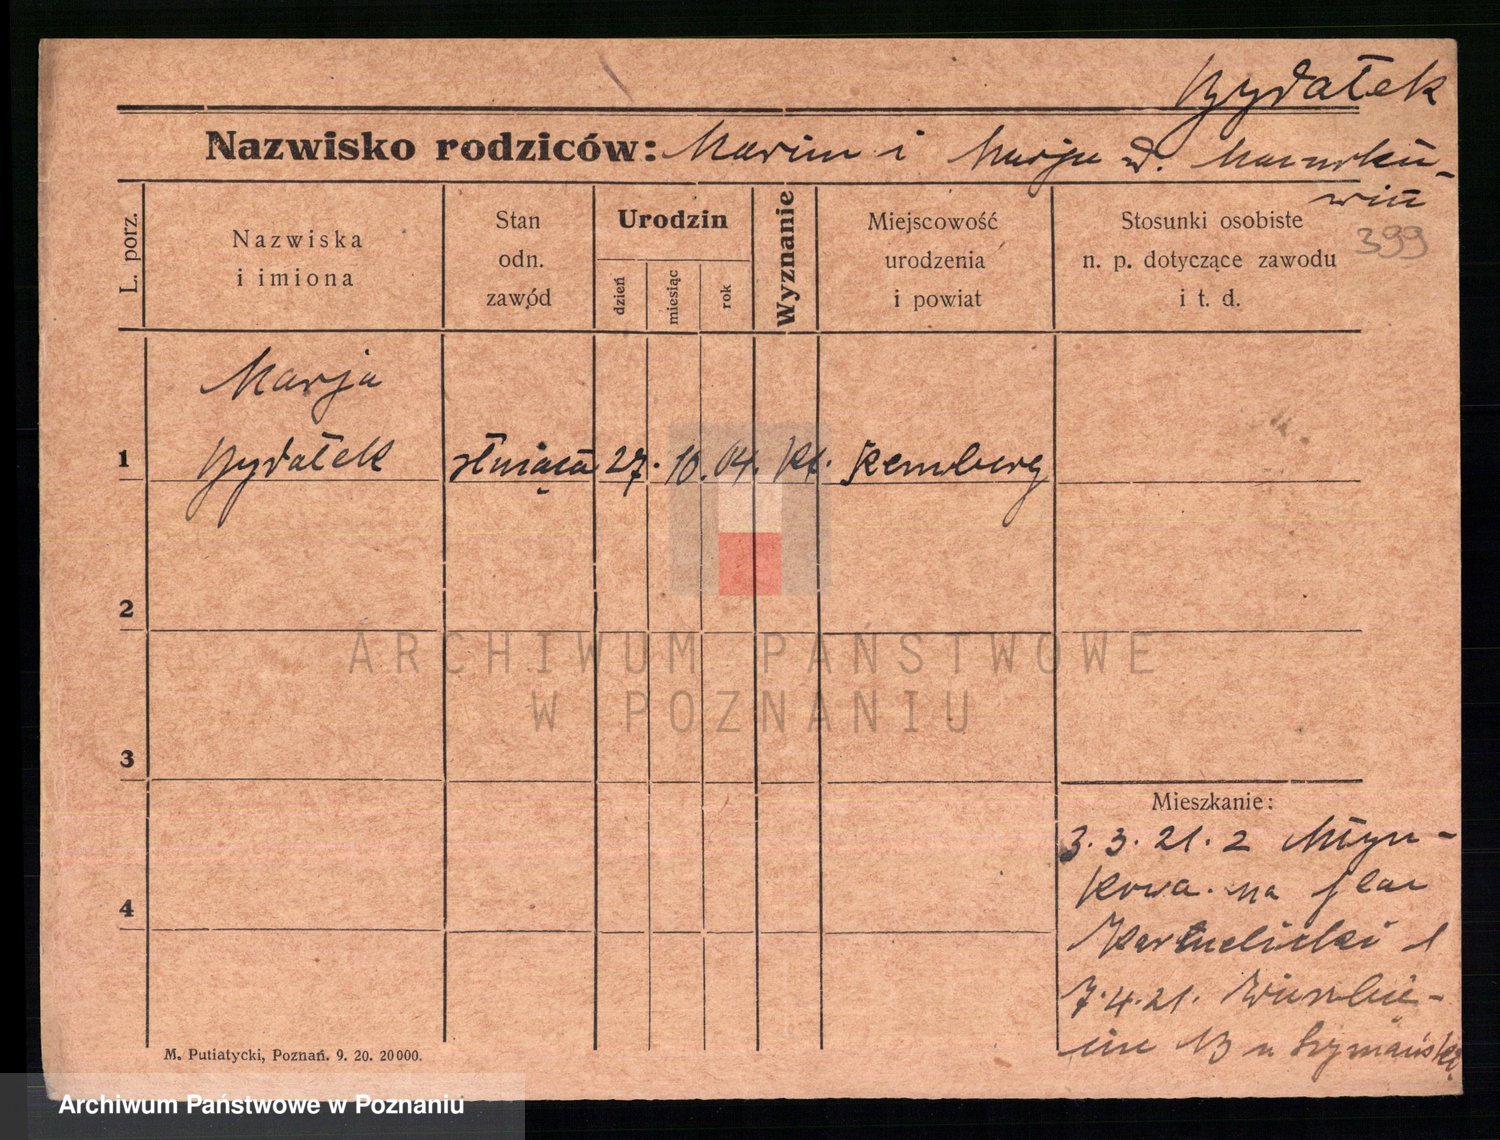 Gydałek
Nazwisko rodziców: Marcin i Marja d.
399
L. porz.
Nazwiska
i imiona
Stan
odn.
zawód
Urodzin
dzień
miesiąc
rok
Wyznanie
Miejscowość
urodzenia
i powiat
Stosunki osobiste
n. p. dotyczące zawodu
i t. d.
Marja
1 Gydałek służąca 27. 10. 04. kt. Kemberg
2
ARCHIWUM PAŃSTWOWE
W POZNANIU
3
Mieszkanie:
3. 3. 21. 2 Młyń-
kowa. na plac
4
Karmelicki 1
7. 4. 21. Wierzbię-
cice 13 u Szymański
M. Putiatycki, Poznań. 9. 20. 20000.
Archiwum Państwowe w Poznaniu